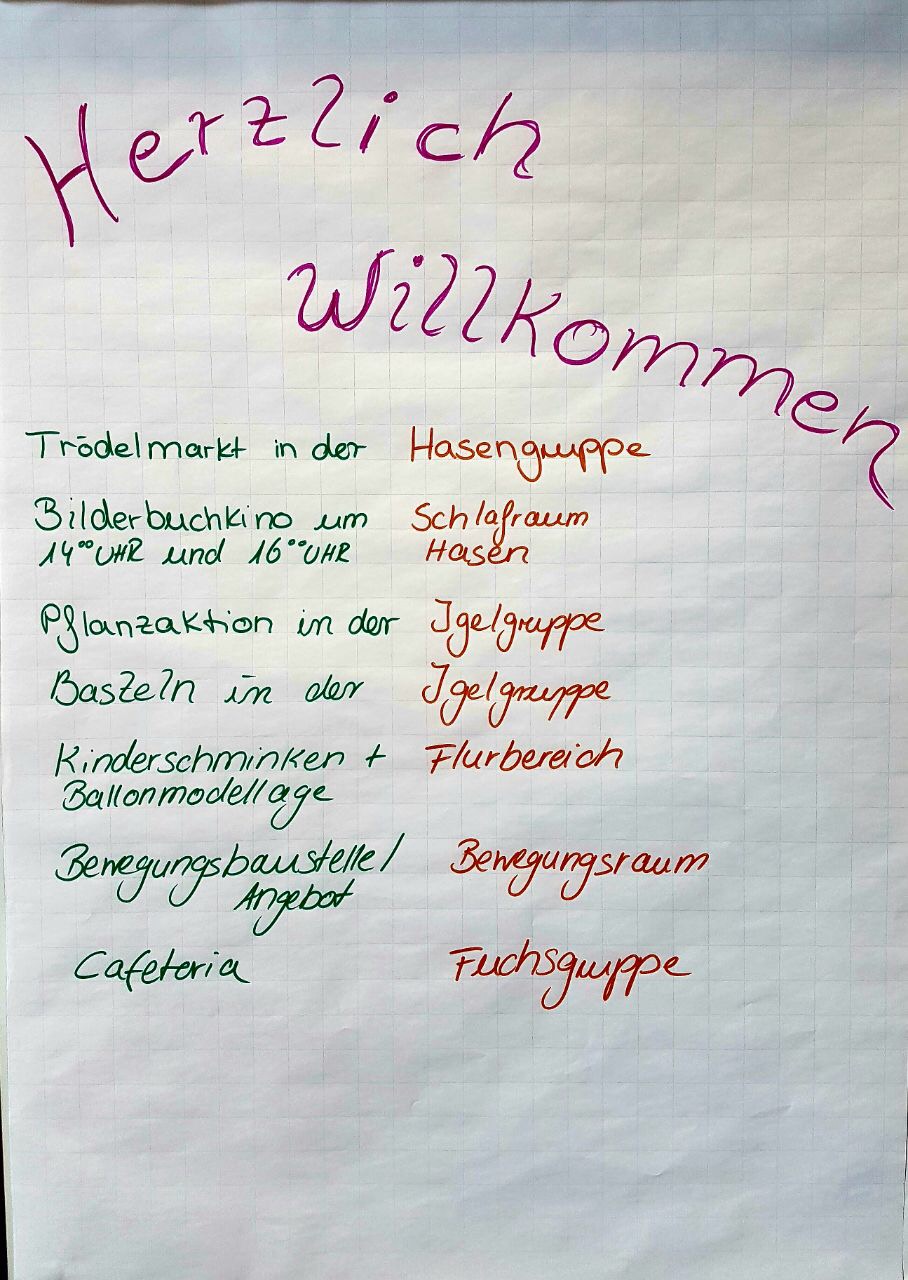 Herzlich
Willkommen
Trödelmarkt in der Hasengruppe
Bilderbuchkino um Schlafraum
14⁰⁰ UHR und 16⁰⁰ UHR Hasen
Pflanzaktion in der Igelgruppe
Basteln in der Igelgruppe
Kinderschminken + Flurbereich
Ballonmodellage
Bewegungsbaustelle/ Bewegungsraum
Angebot
Cafeteria Fuchsgruppe